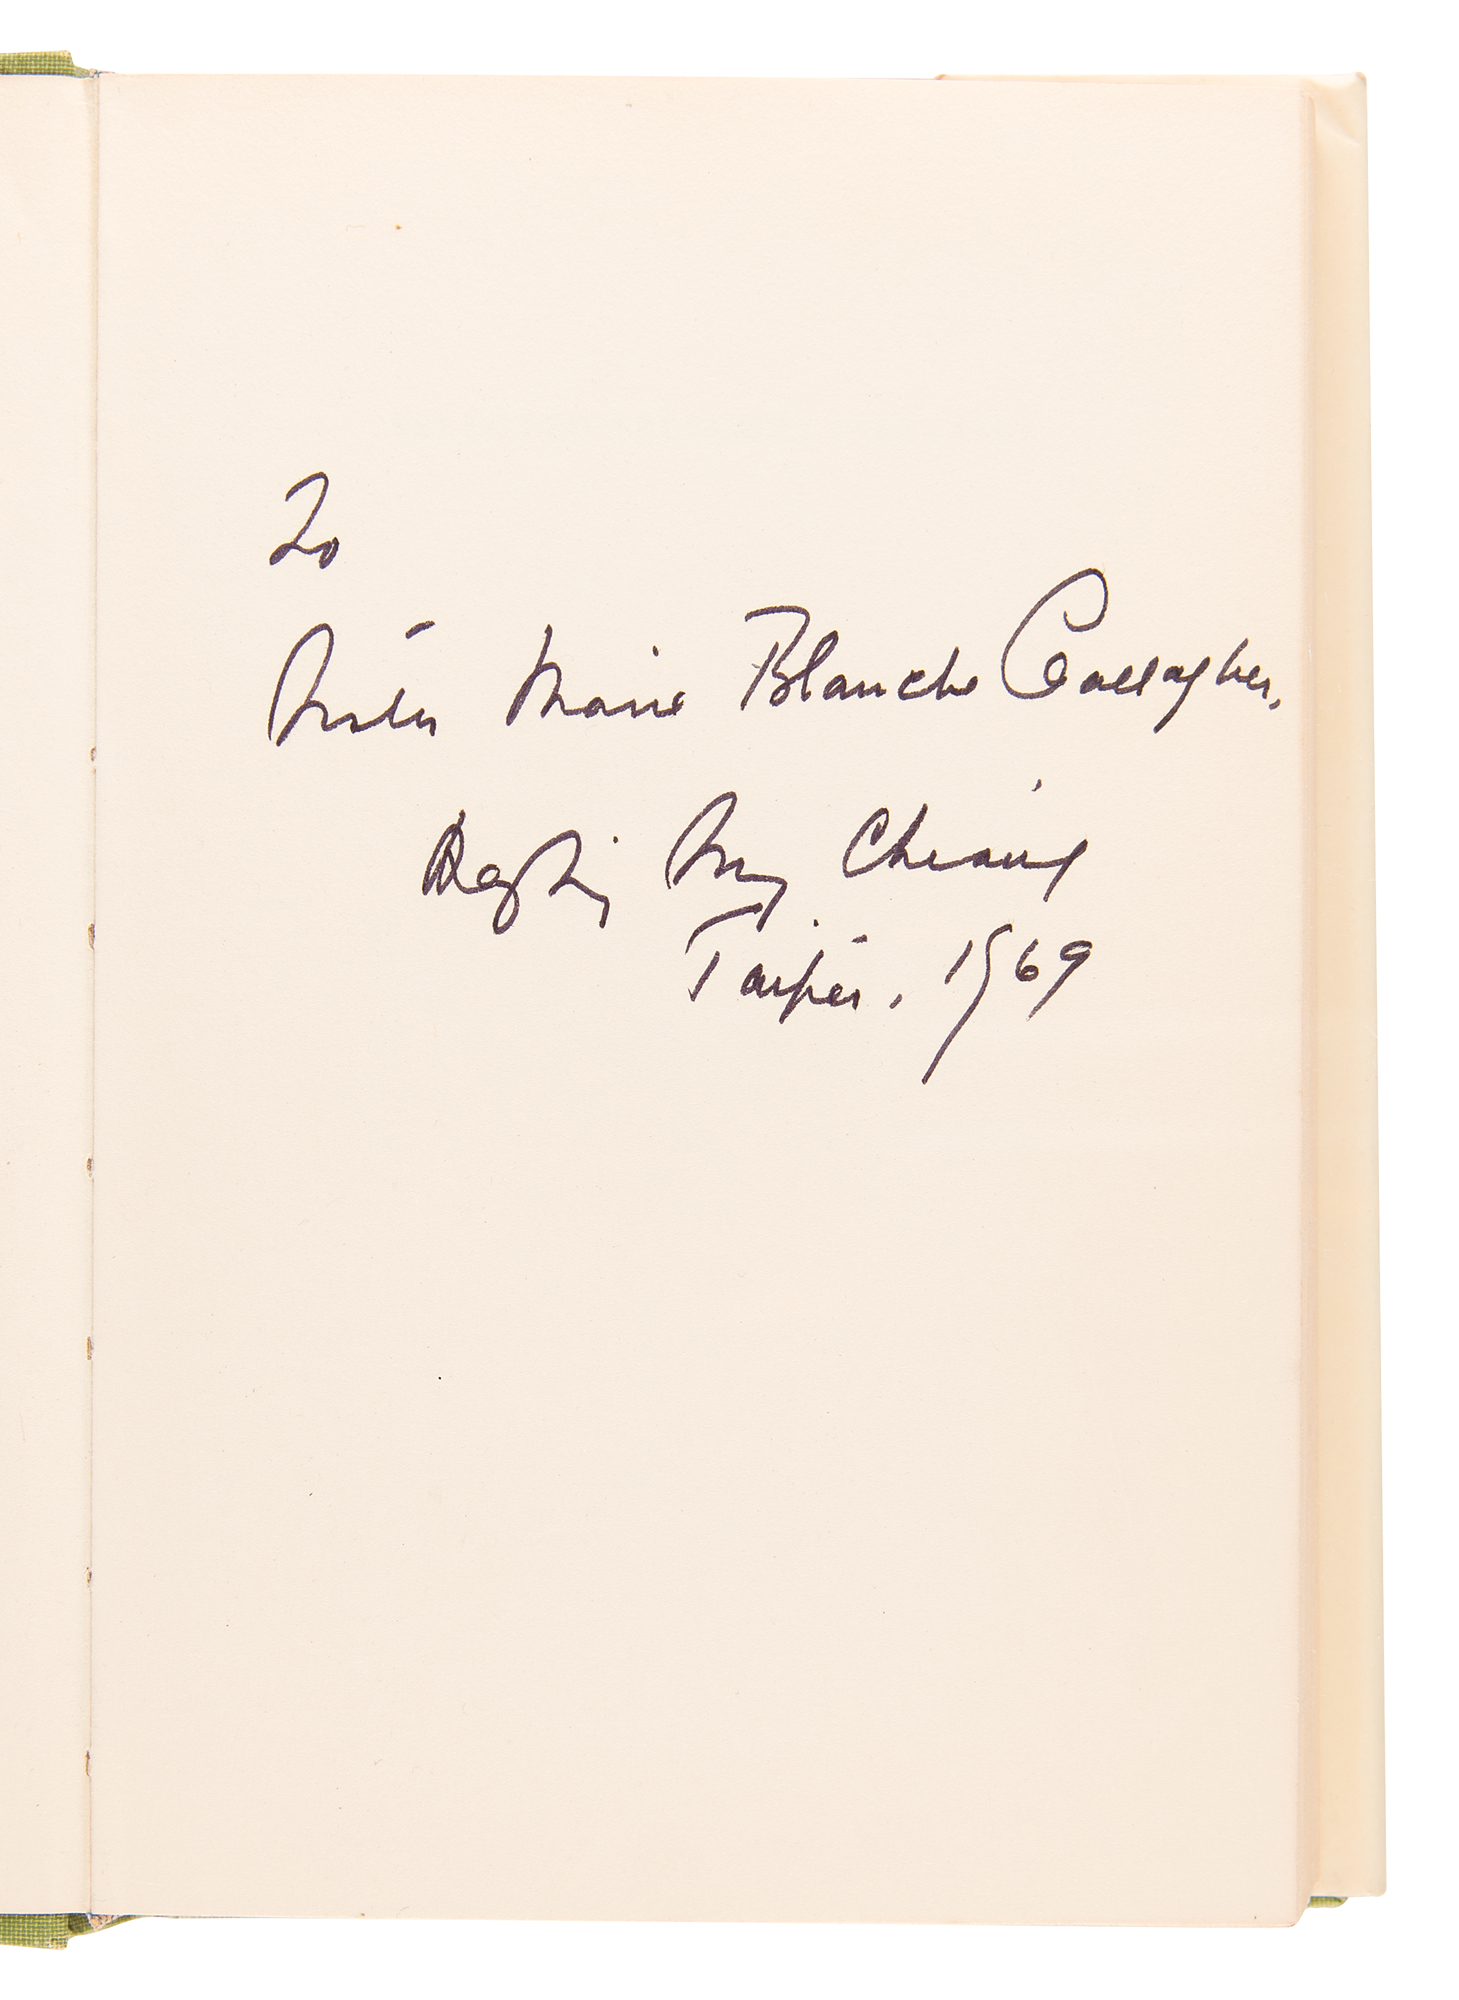 To
Sister Marie Blanche Gallagher,
Mayling Soong Chiang
Taipei, 1969